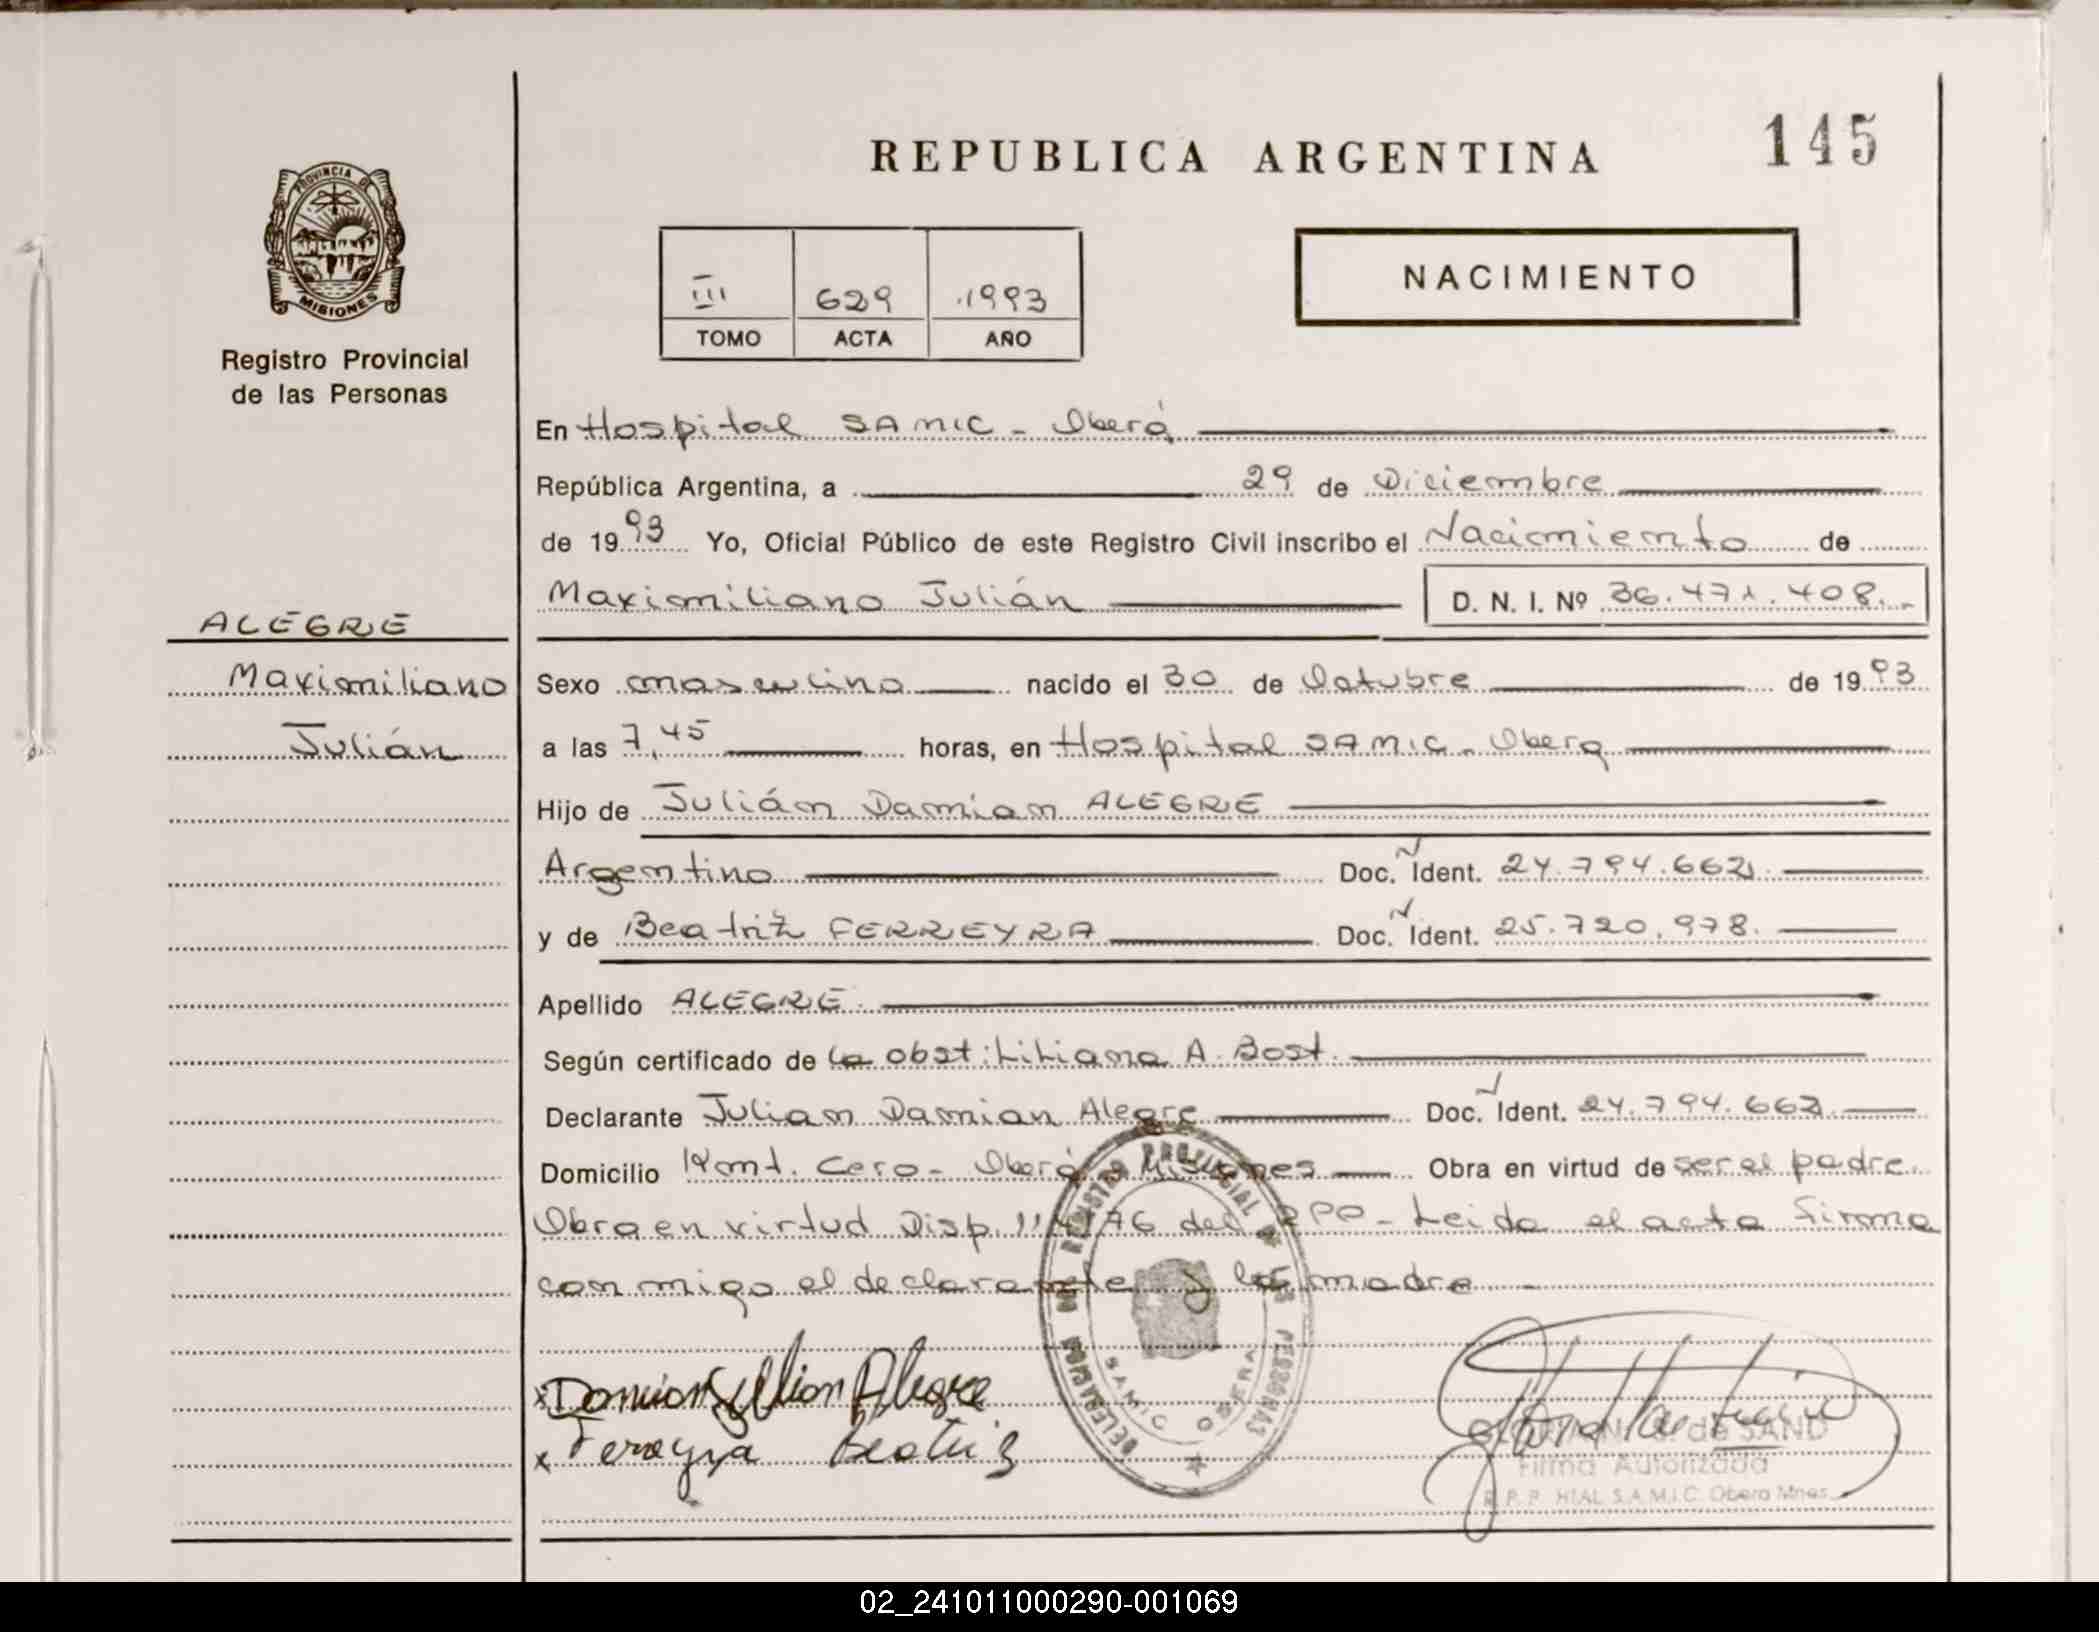 145
REPUBLICA ARGENTINA
PROVINCIA DE
MISIONES
Registro Provincial
de las Personas
III 629 1993
TOMO ACTA AÑO
NACIMIENTO
En Hospital SAMIC - Oberá
República Argentina, a 29 de Diciembre
de 1993 Yo, Oficial Público de este Registro Civil inscribo el Nacimiento de
Maximiliano Julián D. N. I. Nº 36.471.408.-
ALEGRE
Maximiliano
Julián
Sexo masculino nacido el 30 de Octubre de 1993
a las 7,45 horas, en Hospital SAMIC - Obera
Hijo de Julián Damian ALEGRE
Argentino Doc. Ident. 24.794.662
y de Beatriz FERREYRA Doc. Ident. 25.720.978.
Apellido ALEGRE
Según certificado de la obst: Liliana A. Bost.
Declarante Julian Damian Alegre Doc. Ident. 24.794.662
Domicilio Cero - Oberá - Misiones Obra en virtud de ser el padre.
Obra en virtud Disp. del RPP - Leida el acta firma
conmigo el declarante y la madre
DELEGACION DEL REGISTRO PROVINCIAL DE LAS PERSONAS
SAMIC OBERA
x Damian Julian Alegre
x Fereyra Beatriz
de SAND
Firma Autorizada
R. P. P. HIAL S.A.M.I.C. Obera Mnes.
02_241011000290-001069